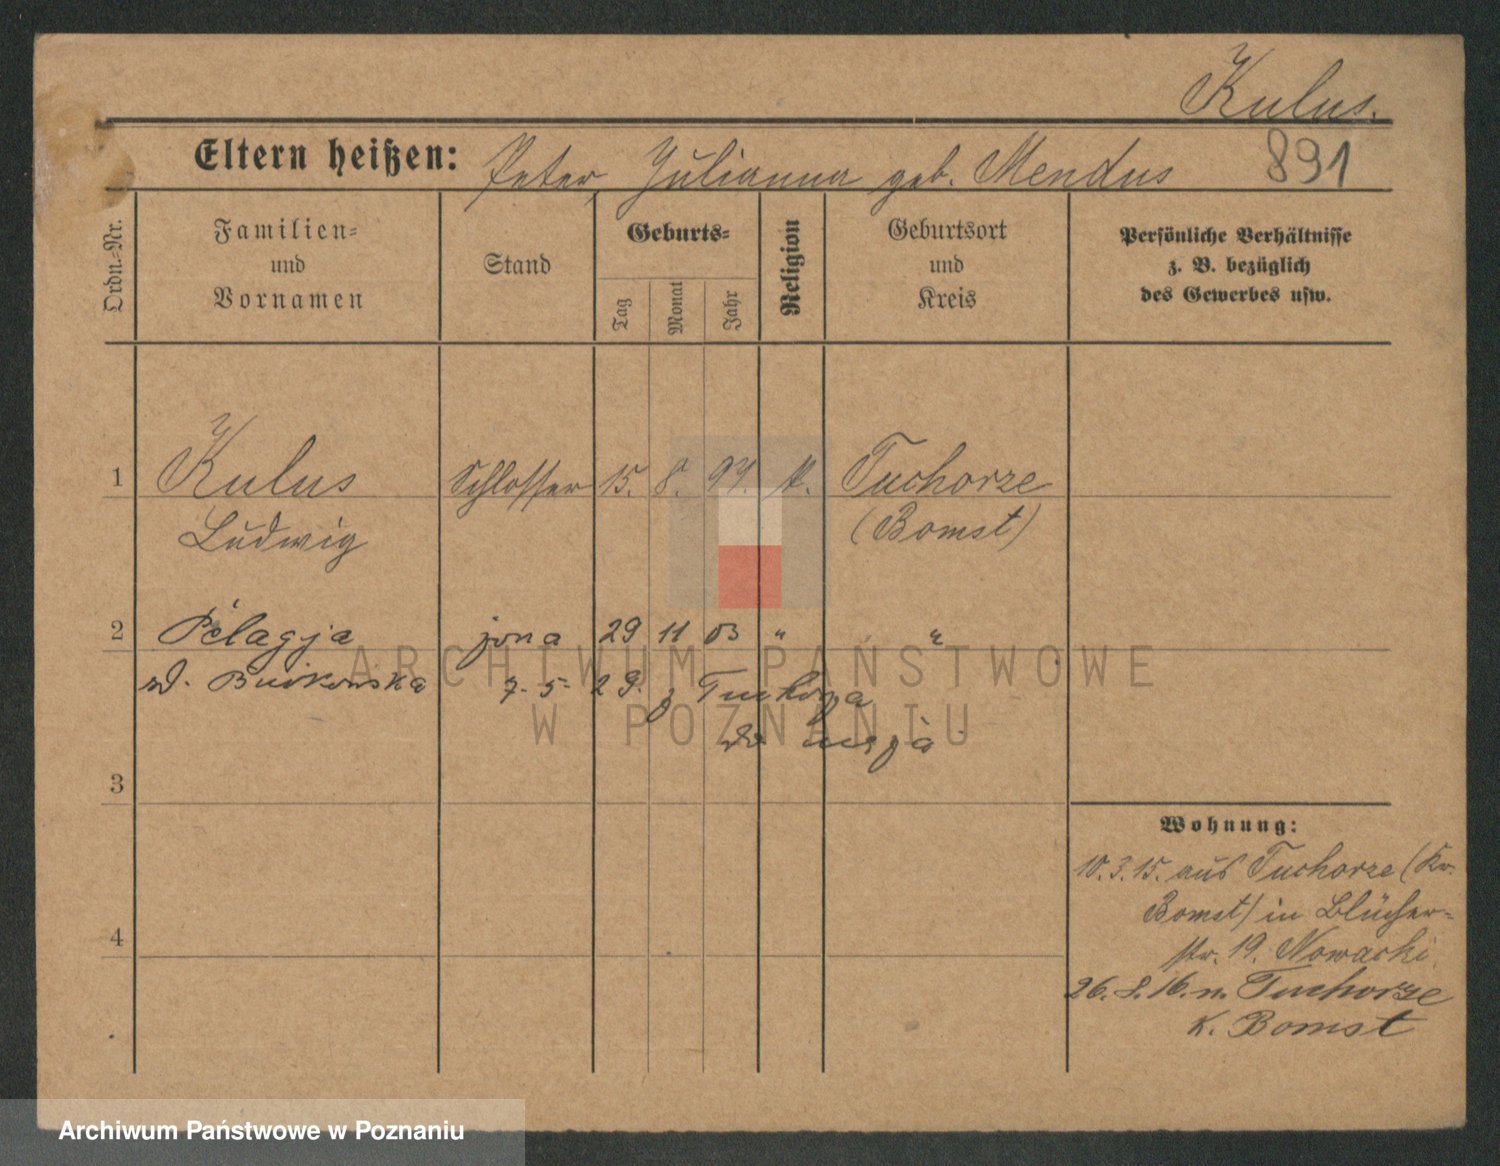 Kulus.
Eltern heißen: Peter, Julianna geb. Mendus 891
Ordn.-Nr.
Familien-
und
Vornamen
Stand
Geburts-
Tag
Monat
Jahr
Religion
Geburtsort
und
Kreis
Persönliche Verhältnisse
z. B. bezüglich
des Gewerbes usw.
1 Kulus Schlosser 15. 8. 97. k. Tuchorze
Ludwig (Bomst)
2 Pelagja żona 29 11 03 " "
7. 5. 29. z Tuchorza
do
3
4
Wohnung:
10.3.15. aus Tuchorze (Kr.
Bomst) in Blücher-
str. 19. Nowacki.
26. 8. 16. n. Tuchorze
K. Bomst
ARCHIWUM PAŃSTWOWE
W POZNANIU
Archiwum Państwowe w Poznaniu